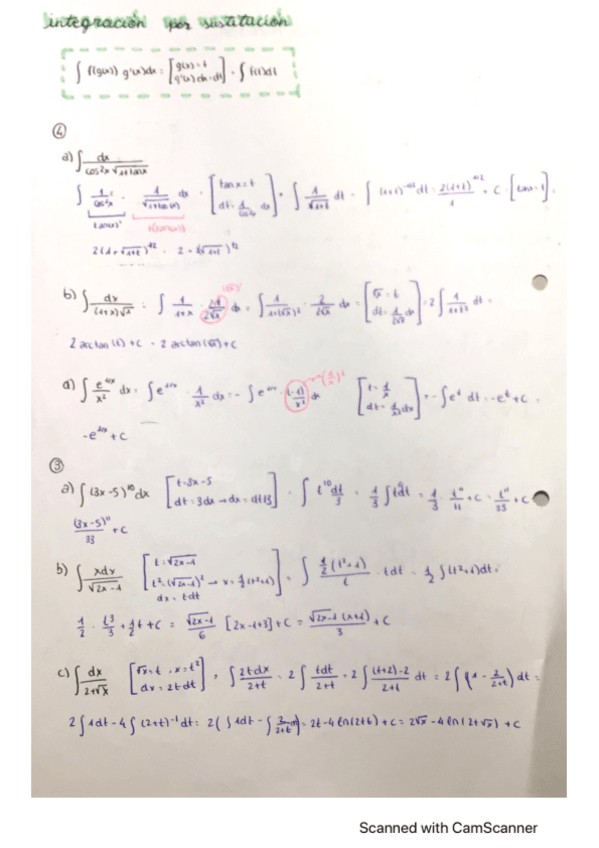 integración por sustitución
∫ f(g(x)) g'(x)dx = [g(x) = t g'(x)dx = dt] = ∫ f(t)dt
④
a) ∫ dx / cos²x √1+tanx
∫ 1/cos²x · 1/√1+tan(x) dx = [tan x = t dt = 1/cos²x dx] = ∫ 1/√1+t dt = ∫ (1+t)^-1/2 dt = 2(1+t)^1/2 / 1 + C = [tan x = t]
tan(x)'
b) ∫ dx / (1+x)√x = ∫ 1/1+x · 2·1/2√x dx = ∫ 1/1+(√x)² · 2/2√x dx = [√x = t dt = 1/2√x dx] = 2 ∫ 1/1+t² dt =
(√x)'
2 arctan (t) + C = 2 arctan (√x) + C
d) ∫ e^1/x / x² dx = ∫ e^1/x · 1/x² dx = - ∫ e^1/x · (-1)/x² dx [t = 1/x dt = -1/x² dx] = - ∫ e^t dt = -e^t + C =
(1/x)'
-e^1/x + C
③
a) ∫ (3x-5)^10 dx [t = 3x-5 dt = 3dx → dx = dt/3] = ∫ t^10 dt/3 = 1/3 ∫ t^10 dt = 1/3 · t^11/11 + C = t^11/33 + C
(3x-5)^11 / 33 + C
b) ∫ xdx / √2x-1 [t = √2x-1 t² = (√2x-1)² → x = 1/2(t²+1) dx = tdt] = ∫ 1/2(t²+1) / t · tdt = 1/2 ∫ (t²+1)dt =
1/2 · t³/3 + 1/2 t + C = √2x-1 / 6 [2x-1+3] + C = √2x-1 (x+1) / 3 + C
c) ∫ dx / 2+√x [√x = t , x = t² dx = 2t dt] = ∫ 2t dx / 2+t = 2 ∫ tdt / 2+t = 2 ∫ (t+2)-2 / 2+t dt = 2 ∫ (1 - 2/2+t) dt =
2 ∫ 1dt - 4 ∫ (2+t)^-1 dt = 2 ( ∫ 1dt - ∫ 2/2+t dt) = 2t - 4 ln(2+t) + C = 2√x - 4 ln (2+√x) + C
Scanned with CamScanner